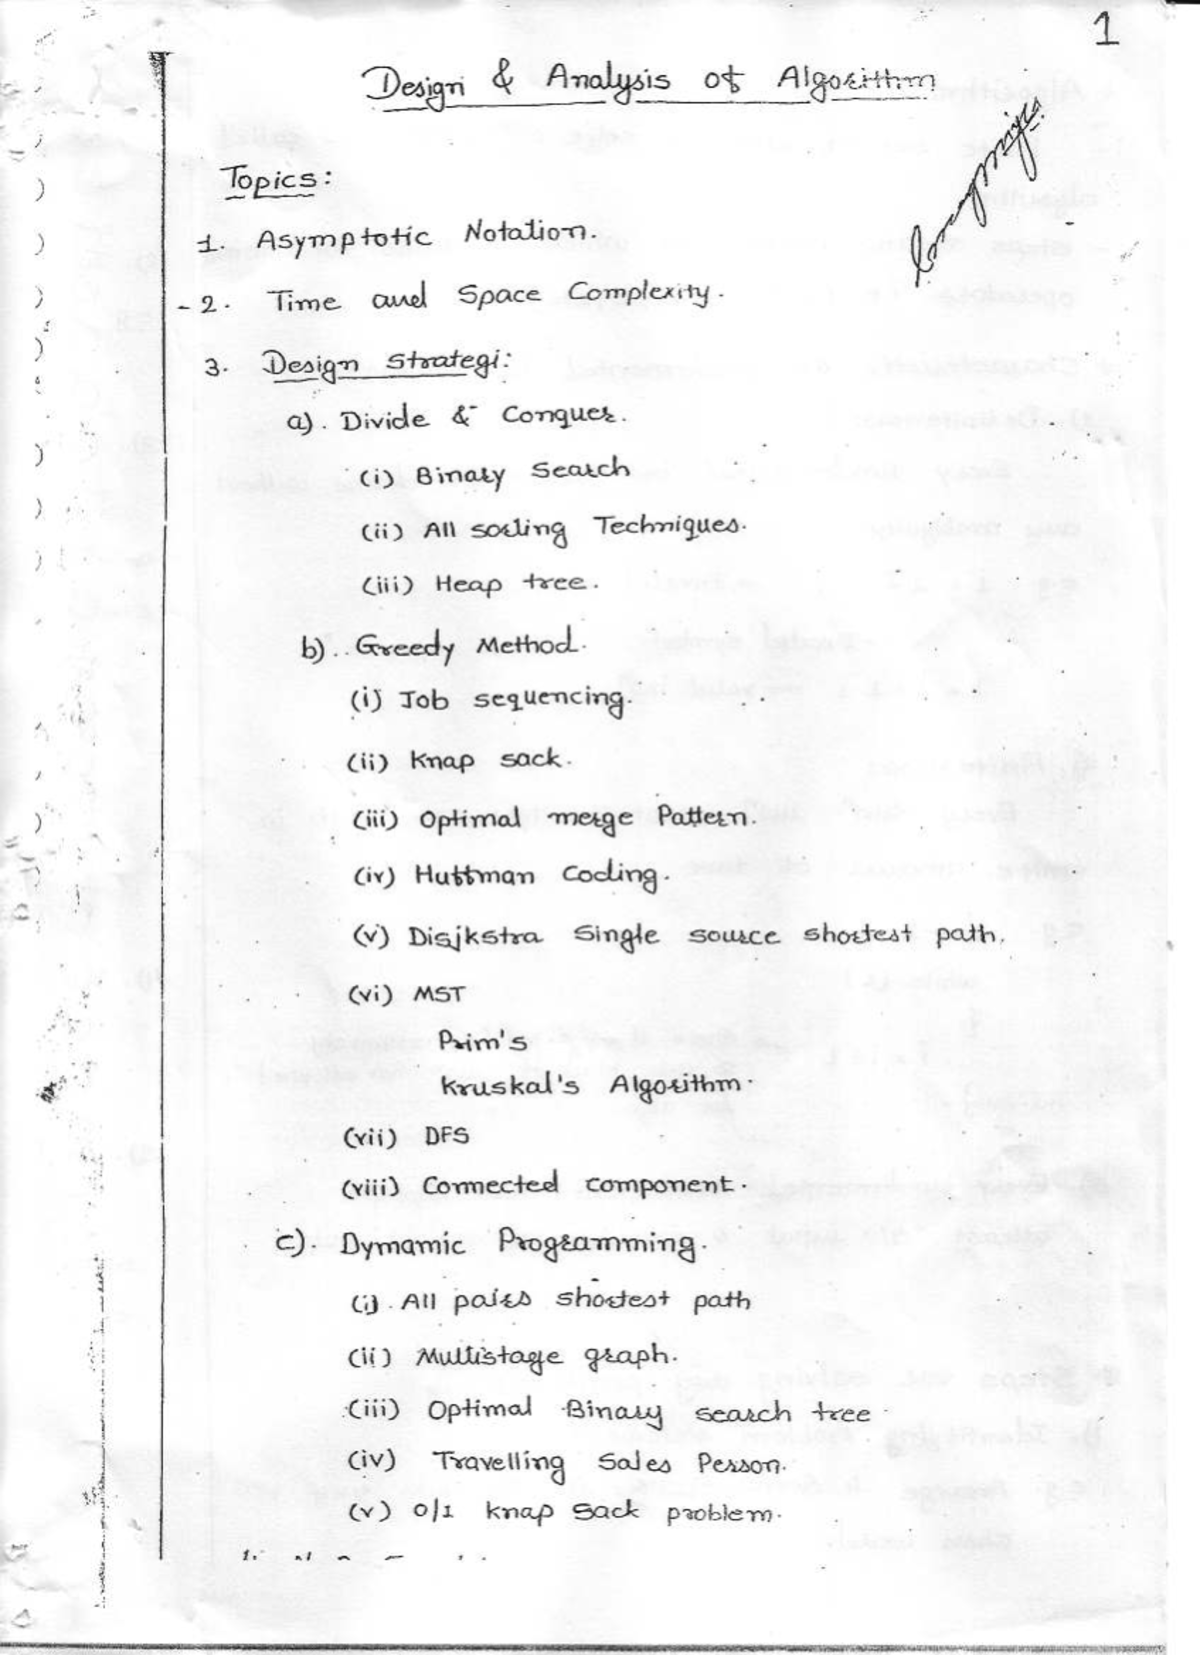 1
Design & Analysis of Algorithm
Topics:
1. Asymptotic Notation.
2. Time and Space Complexity.
3. Design Strategi:
a). Divide & Conquer.
(i) Binary Search
(ii) All sorting Techniques.
(iii) Heap tree.
b). Greedy Method.
(i) Job sequencing.
(ii) Knap sack.
(iii) Optimal merge Pattern.
(iv) Huffman Coding.
(v) Disjkstra Single source shortest path.
(vi) MST
Prim's
Kruskal's Algorithm.
(vii) DFS
(viii) Connected component.
c). Dynamic Programming.
(i). All pairs shortest path
(ii) Multistage graph.
(iii) Optimal Binary search tree
(iv) Travelling Sales Person.
(v) 0/1 knap sack problem.